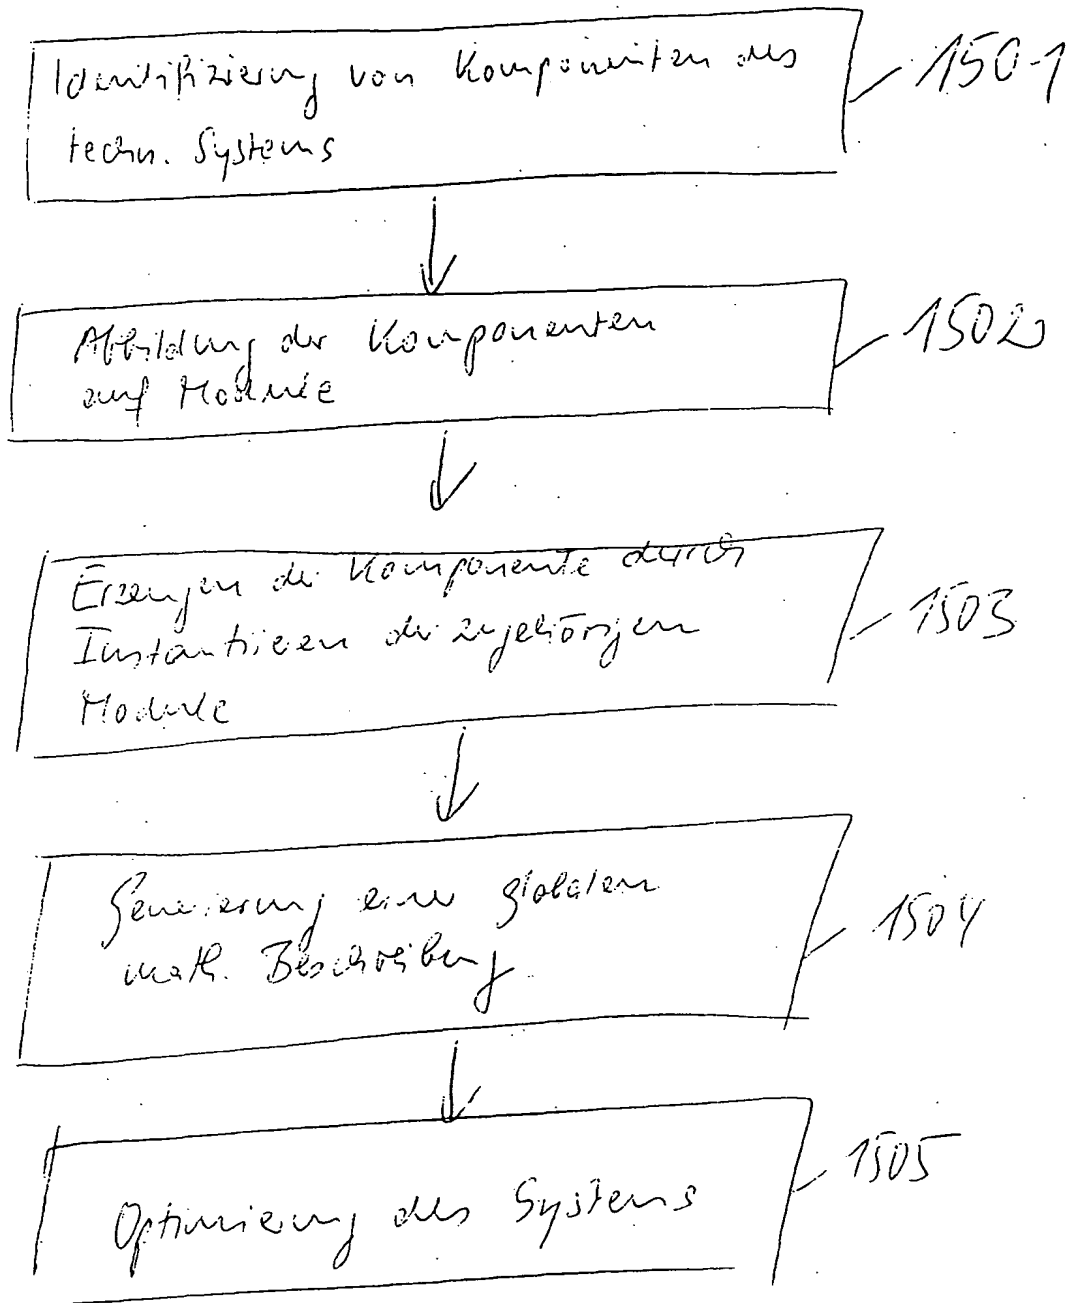 Identifizierung von Komponenten des
techn. Systems
1501
Abbildung der Komponenten
auf Module
1502
Erzeugen der Komponente durch
Instantiieren der zugehörigen
Module
1503
Generierung einer globalen
math. Beschreibung
1504
Optimierung des Systems
1505